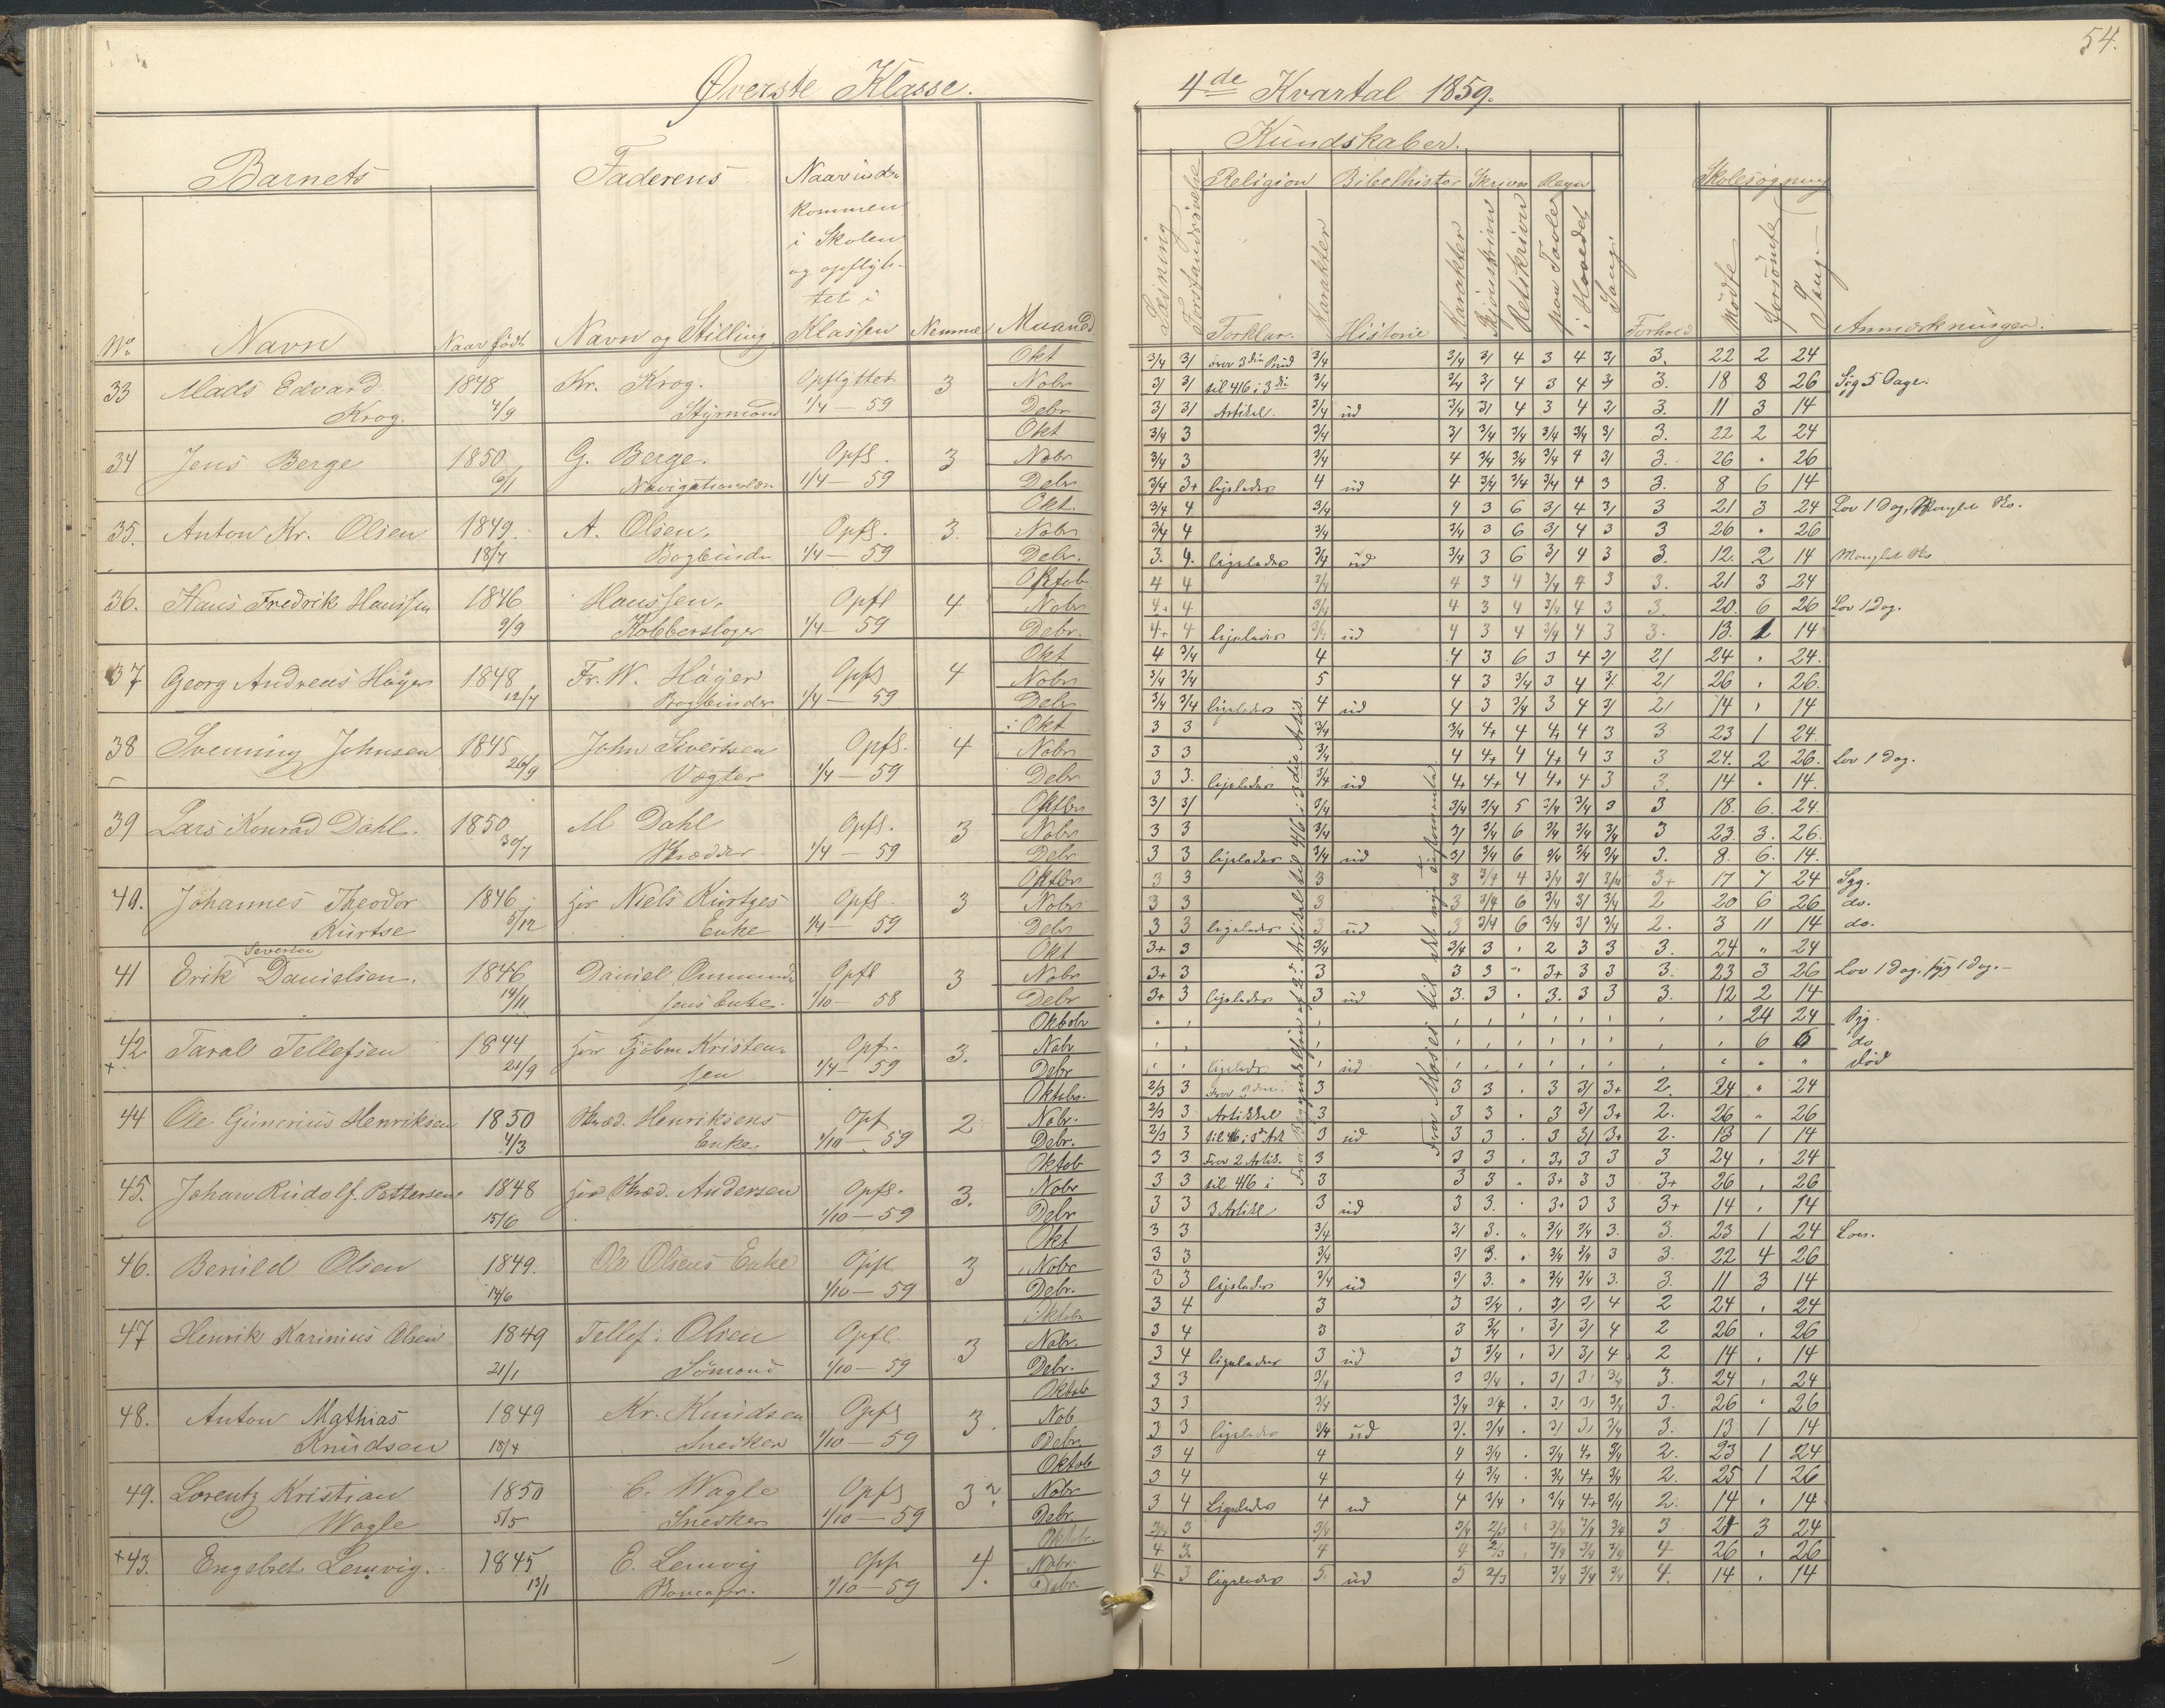 Øverste Klasse.
Barnets
Faderens
Naar indkommen i Skolen og opflyttet i Klassen
No
Navn
Naar født
Navn og Stilling
Nemme
Maaned.
33 Mads Edvard 1848 Kr. Krog. Opflyttet 3 Okt Nobr Debr
Krog. 4/9 Styrmand 1/4 — 59
34 Jens Berge 1850 G. Berge. Opfl. 3 Okt Nobr Debr
6/1 1/4 — 59
35. Anton Kr. Olsen 1849 A. Olsen. Opfl. 3. Okt. Nobr Debr.
18/7 Bogbinder 1/4 — 59
36. Hans Fredrik Hanssen 1846 Hanssen. Opfl 4 Oktob Nobr Debr.
9/9 Kobberslager 1/4 — 59
37 Georg Andreas Höyer 1848 Fr. W. Höyer Opfl 4 Okt Nobr Debr
12/7 Bogbinder 1/4 — 59
38 Svenning Johnsen 1845 John Sivertsen Opfl. 4 Okt Nobr Debr
26/9 Vægter 1/4 — 59
39 Lars Konrad Dahl. 1850 M Dahl Opfl. 3 Oktbr Nobr Debr
30/7 Skrædder 1/4 — 59
40. Johannes Theodor 1846 hos Niels Kürtzes Opfl. 3 Oktbr Nobr Debr
Kürtse 5/12 Enke 1/4 — 59
Severin
41 Erik Danielsen. 1846 Daniel Ommund- Opfl 3 Okt Nobr Debr
14/11 sens Enke. 1/10 — 58
42 Taral Tellefsen 1844 hos Kristen- Opf. 3. Oktobr Nobr Debr
+ 21/9 sen 1/4 — 59
44 Ole Gunerius Henriksen 1850 Skræd. Henriksens Opf 2 Oktobr. Nobr. Debr.
4/3 Enke. 1/10 — 59
45. Johan Rudolf Pettersen 1848 hos Skræd. Andersen Opfl. 3. Oktob Nobr Debr
15/6 1/10 — 59
46. Berild Olsen 1849. Ole Olsens Enke Opfl 3 Okt Nobr Debr.
14/6 1/10 — 59
47 Henrik Karinius Olsen 1849 Tellef Olsen Opfl. 3 Oktobr Nobr. Debr.
21/1 Sömand 1/10 — 59
48. Anton Mathias 1849 Kr. Knudsen Opfl 3. Oktob Nob Debr.
Knudsen 18/4 Snedker 1/10 — 59
49. Lorentz Kristian 1850 C. Wagle Opfl 3 Oktob Nobr Debr
Wagle 5/5 Snedker 1/10 — 59
+43. Engebret Lemvig. 1845 E. Lemvig Opp 4. Oktobr. Nobr. Debr.
13/1 1/10 — 59
54.
4de Kvartal 1859.
Kundskaber.
Læsning
Forstandsøvelse
Religion
Bibelhistor
Skrivn
Regn
Skolesøgning
Forklar.
Karakter
Historie
Karakter
Skjönskrivn
Retskrivn
paa Tavle
i Hovedet
Sang
Forhold
Mödte
forsömte
Dage
Anmærkninger.
3/4 3/ Fra 3die Bud 3/4 3/4 3/ 4 3 4 3/ 3. 22 2 24
3/ 3/ til 416 i 3die 3/4 3/4 3/ 4 3 4 3/ 3. 18 8 26 Syg 5 Dage.
3/ 3/ Artikel. 3/4 ud 3/4 3/ 4 3 4 3/ 3. 11 3 14
3/4 3 3/4 3/ 3/4 3/4 3/4 3/4 3/ 3. 22 2 24
3/4 3 3/4 4 3/4 3/4 3/4 4 3/ 3. 26 " 26
3/4 3+ ligeledes 4 ud 4 3/4 3/4 3/4 4 3 3. 8 6 14
3/4 4 3/4 4 3 6 3/ 4 3/ 3 21 3 24 Lov 1 Dag,
3/4 4 3/4 3/4 3 6 3/ 4 3 3 26 " 26
3. 4. ligeledes 3/4 ud 3/4 3 6 3/ 4 3 3. 12. 2 14
4 4 3/4 4 3 4 3/4 4 3 3. 21 3 24
4+ 4 3/4 4 3 4 3/4 4 3 3. 20. 6 26 Lov 1 Dag.
4+ 4 ligeledes 3/4 ud 4 3 4 3/4 4 3 3. 13. 1 14
4 3/4 4 4 3 6 3 4 3/ 2/ 24 " 24.
3/4 3/4 5 4 3 3/4 3 4 3/ 2/ 26 " 26.
3/4 3/4 ligeledes 4 ud 4 3 3/4 3 4 3/ 2/ 14 " 14
3 3 3/4 3/4 4+ 4 4+ 4 3 3 23 1 24.
3 3 3/4 4 4+ 4 4+ 4 3 3 24. 2 26. Lov 1 Dag.
3 3. ligeledes 3/4 ud 4+ 4+ 4 4+ 4 3 3. 14 " 14.
3/ 3/ 3/4 3/4 3/4 5 3/4 3/4 3 3 18. 6. 24.
3 3 3/4 3/ 3/4 6 3/4 3/4 3/4 3 23. 3. 26.
3 3 ligeledes 3/4 ud 3/ 3/4 6 3/4 3/4 3/4 3. 8. 6. 14.
3 3 3 3 3/4 4 3/4 3/ 3/4 3+ 17 7 24 Syg.
3 3 3 3 3/4 6 3/4 3/ 3/4 2 20 6 26 do.
3 3 ligeledes 3 ud 3 3/4 6 3/4 3/ 3/4 2. 3 11 14 do.
3+ 3 3/4 3/4 3 " 2 3 3 3. 24 " 24
3+ 3 3 3 3 " 3+ 3 3 3. 23 3 26 Lov 1 Dag. syg 1 Dag.
3+ 3 ligeledes 3 ud 3. 3. " 3. 3 3 3. 12 2 14
" " " " " " " " " " " 24 24 Syg.
" " " " " " " " " " " 6 6 do
" " ligeledes " ud " " " " " " " " " " död
2/3 3 Fra 2den 3 3 3 " 3 3/ 3+ 2. 24 " 24
2/3 3 Artikkel 3 3 3 " 3 3/ 3+ 2. 26 " 26
2/3 3 til 416 i 3die Art 3 ud 3 3 " 3 3/ 3+ 2. 13 1 14
3 3 Fra 2 Artik. 3 3 3 " 3+ 3 3 3 24 " 24
3 3 til 416 i 3 3 3 " 3+ 3 3 3+ 26 " 26
3 3 3 Artikl 3 ud 3 3. " 3+ 3 3 3+ 14 " 14
3 3 3/4 3/ 3. " 3/4 3/4 3. 3. 23 1 24 Lov.
3 3 3/4 3/ 3. " 3/4 3/4 3 3. 22 4 26
3 3 ligeledes 3/4 ud 3/ 3. " 3/4 3/4 3. 3. 11 3 14
3 4 3 3 3/4 " 3/ 3/ 4 2 24 " 24
3 4 3 3 3/4 " 3/ 3/ 4 2 26 " 26
3 4 ligeledes 3 ud 3 3/4 " 3/ 3/ 4 2 14 " 14
3 3 3/4 3 3/4 " 3/ 3/ 3/4 3. 24 " 24
3 3 3/4 3/4 3/4 " 3/ 3/ 3/4 3. 26 " 26
3 3 ligeledes 3/4 ud 3/. 3/4 " 3/ 3/ 3/4 3. 13 1 14
3 4 4 4 3/4 " 3/4 4+ 3/4 2. 23 1 24
3 4 4 4 3/4 " 3/4 4+ 3/4 2. 25 1 26
3 4 Ligeledes 4 ud 4 3/4 " 3/4 4+ 3/4 2. 14 " 14
3/4 3 3/4 3/4 2/3 " 3/4 3/4 3/4 3 21 3 24
4 3. 4 4 2/3 " 3/4 3/4 3/4 4 26 " 26
4 3 ligeledes 5 ud 5 2/3 3/4 3/4 3/4 4. 14 " 14
Fra Begyndelsen af 2den Artikel til 416 i 3die Artik.
Fra Moses til det nye Testamente